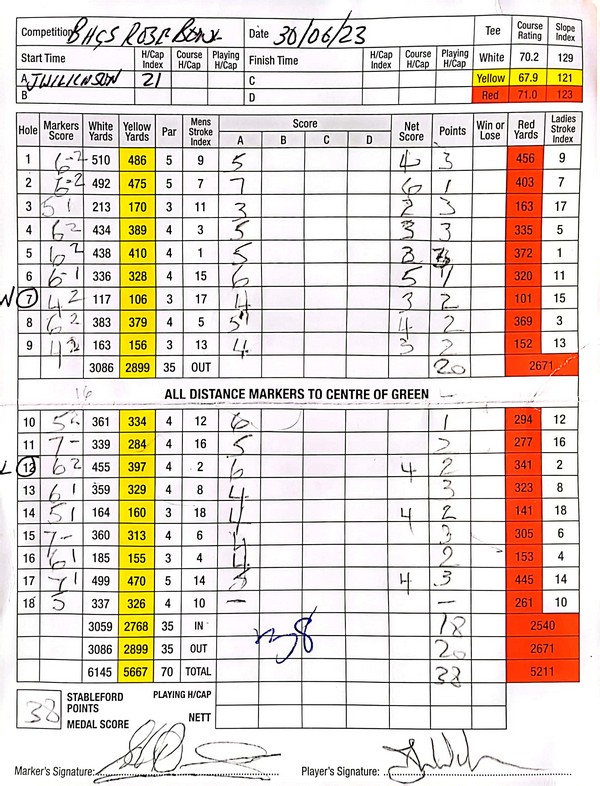 Competition BHGS ROSE BOWL Date 30/06/23 Tee Course Rating Slope Index
Start Time H/Cap Index Course H/Cap Playing H/Cap Finish Time H/Cap Index Course H/Cap Playing H/Cap White 70.2 129
A J WILKINSON 21 C Yellow 67.9 121
B D Red 71.0 123
Hole Markers Score White Yards Yellow Yards Par Mens Stroke Index Score A B C D Net Score Points Win or Lose Red Yards Ladies Stroke Index
1 6-2 510 486 5 9 5 4 3 456 9
2 6-2 492 475 5 7 7 6 1 403 7
3 5 1 213 170 3 11 3 2 3 163 17
4 6 2 434 389 4 3 5 3 3 335 5
5 6 2 438 410 4 1 5 3 3 372 1
6 6-1 336 328 4 15 6 5 1 320 11
7 4 2 117 106 3 17 4 3 2 101 15
8 6 2 383 379 4 5 5 4 2 369 3
9 4 2 163 156 3 13 4 3 2 152 13
3086 2899 35 OUT 20 2671
16 ALL DISTANCE MARKERS TO CENTRE OF GREEN
10 5 2 361 334 4 12 6 1 294 12
11 7 - 339 284 4 16 5 277 16
12 6 2 455 397 4 2 6 4 2 341 2
13 6 1 359 329 4 8 4 3 323 8
14 5 1 164 160 3 18 4 4 2 141 18
15 7 - 360 313 4 6 4 3 305 6
16 6 1 185 155 3 4 4 2 153 4
17 7 1 499 470 5 14 5 4 3 445 14
18 5 337 326 4 10 - - 261 10
3059 2768 35 IN 18 2540
3086 2899 35 OUT 20 2671
6145 5667 70 TOTAL 38 5211
38 STABLEFORD POINTS PLAYING H/CAP
MEDAL SCORE NETT
Marker's Signature: Player's Signature: